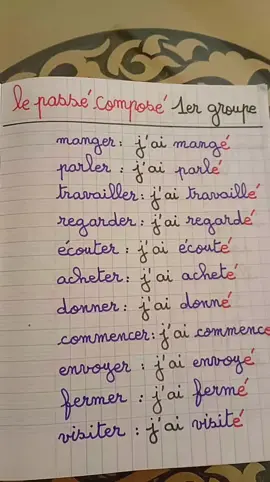 le passé composé 1er groupe
manger : j'ai mangé
parler : j'ai parlé
travailler : j'ai travaillé
regarder : j'ai regardé
écouter : j'ai écouté
acheter : j'ai acheté
donner : j'ai donné
commencer : j'ai commencé
envoyer : j'ai envoyé
fermer : j'ai fermé
visiter : j'ai visité